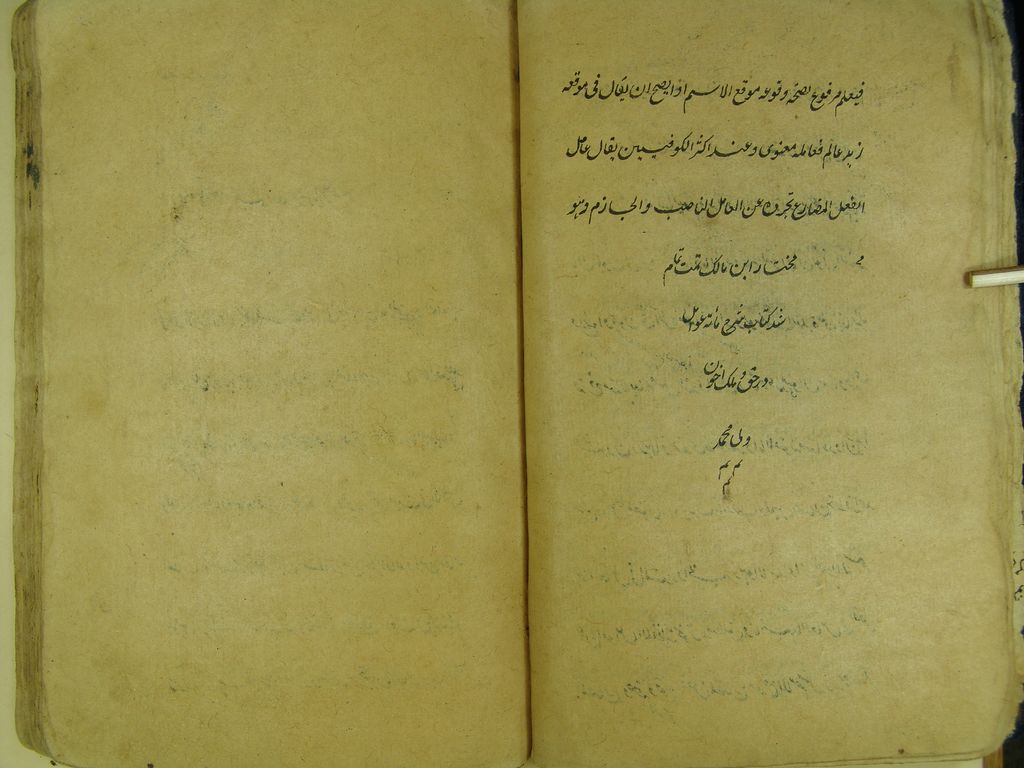 فيعلم مرفوع بصحة وقوعه موقع الاسم اذا يصح ان يقال فى موقعه
زيد عالم فعامله معنوى وعند اكثر الكوفيين يقال عامل
الفعل المضارع تجرده عن العامل الناصب والجازم وهو
مختار ابن مالك تمت تمام
شد كتاب شرح مأته عوامل
در حق و ملك اخون
ولى محمد
م م م